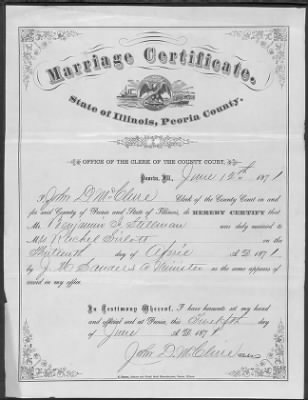 Marriage Certificate.
State of Illinois, Peoria County.
OFFICE OF THE CLERK OF THE COUNTY COURT.
Peoria, Ill., June 12th 1871
I John D. McClure Clerk of the County Court in and
for said County of Peoria and State of Illinois, do HEREBY CERTIFY that
Mr. Benjamin F. Stillman was duly married to
M Rachel on the
day of April A.D. 1871
by J. H. Sanders a Minister as the same appears of
record in my office.
In Testimony Whereof, I have hereunto set my hand
and official seal at Peoria, this Twelfth day
of June A.D. 1871
John D. McClure